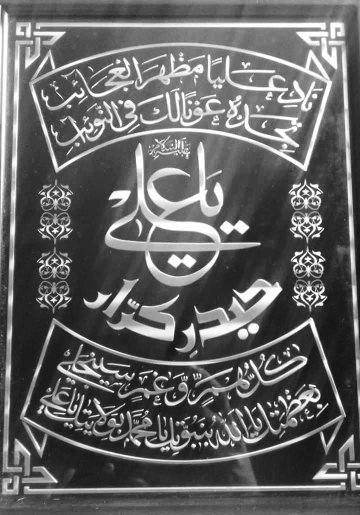 ناد علیا مظهر العجائب
تجده عونا لک في النوائب
علیه السلام
یا علي
حیدر کرار
کل هم و غم سینجلي
بعظمتک یا الله بنبوتک یا محمد بولایتک یا علي